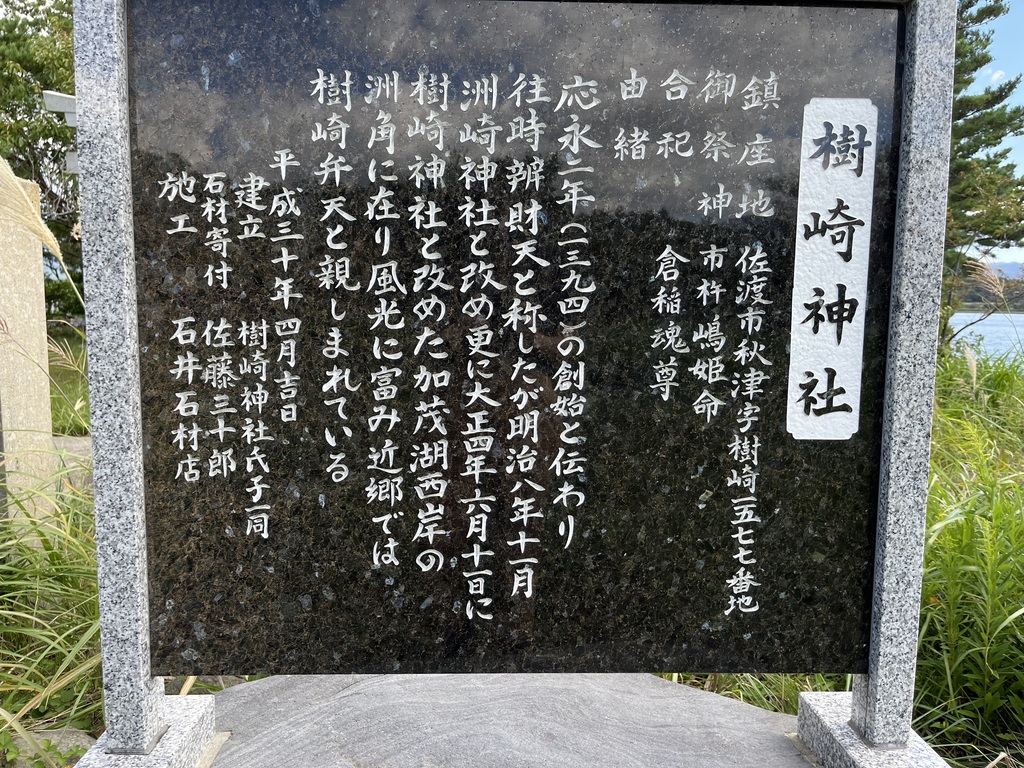 樹崎神社
鎮座地 佐渡市秋津字樹崎一五七七番地
御祭神 市杵嶋姫命
合祀 倉稲魂尊
由緒
応永二年(一三九四)の創始と伝わり
往時辨財天と称したが明治八年十一月
洲崎神社と改め更に大正四年六月十一日に
樹崎神社と改めた加茂湖西岸の
洲角に在り風光に富み近郷では
樹崎弁天と親しまれている
平成三十年四月吉日
建立 樹崎神社氏子一同
石材寄付 佐藤三十郎
施工 石井石材店